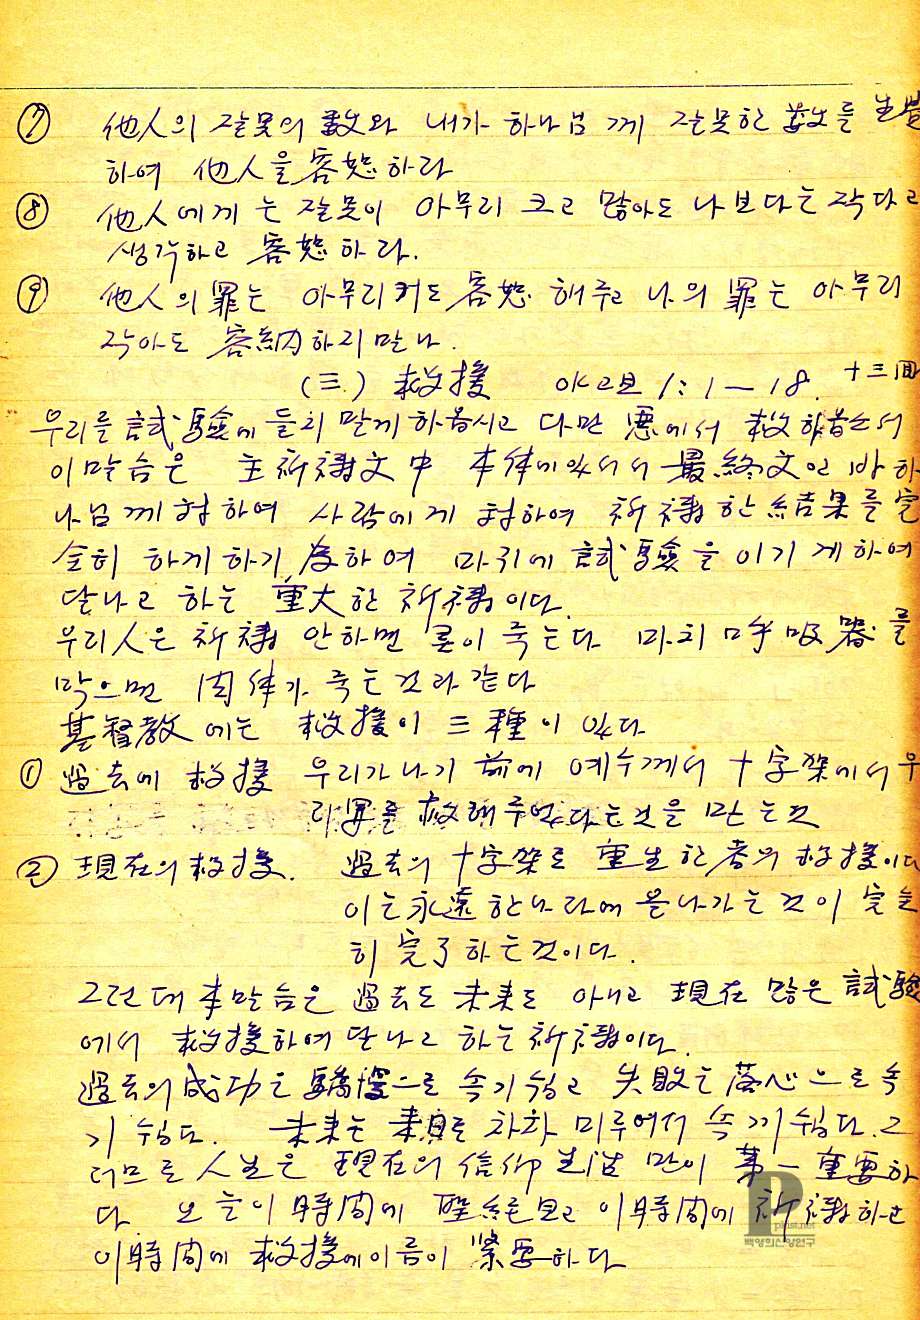 ⑦ 他人의 잘못의 數와 내가 하나님께 잘못한 數를 生覺
하여 他人을 容恕하라
⑧ 他人에게는 잘못이 아무리 크고 많아도 나보다는 작다고
생각하고 容恕하라.
⑨ 他人의 罪는 아무리 커도 容恕 해주고 나의 罪는 아무리
작아도 容納하지 말나.
(三) 救援 야고보 1:1-18. 十三回
우리를 試驗에 들지 말게 하옵시고 다만 惡에서 救하옵소서
이 말슴은 主祈禱文中 本体에 있어서 最終文인 바 하
나님께 향하여 사람에게 향하여 祈禱한 結果를 完
全히 하게하기 為하여 마귀에 試驗을 이기게하여
달나고 하는 重大한 祈禱이다.
우리人은 祈禱 안하면 靈이 죽는다 마치 呼吸器를
막으면 肉体가 죽는것과 같다
基督敎에는 救援이 三種이 있다
① 過去에 救援 우리가 나기 前에 예수께서 十字架에서 우
리를 救해주었다는것을 믿는것
② 現在의 救援. 過去의 十字架로 重生한 者의 救援이다
이는 永遠한 나라에 올나가는 것이 完全
히 完了하는것이다.
그런대 本말슴은 過去도 未來도 아니고 現在 많은 試驗
에서 救援하여 달나고 하는 祈禱이다.
過去의 成功은 驕慢으로 속기쉽고 失敗는 落心으로 속
기 쉽다. 未來는 來日로 차차 미루어서 속기쉽다. 그
더므로 人生은 現在의 信仰生活만이 第一 重要하
다 오늘이 時間에 聖經보고 이時間에 祈禱하고
이時間에 救援에 이름이 緊要하다
pkist.net
백영희신앙연구